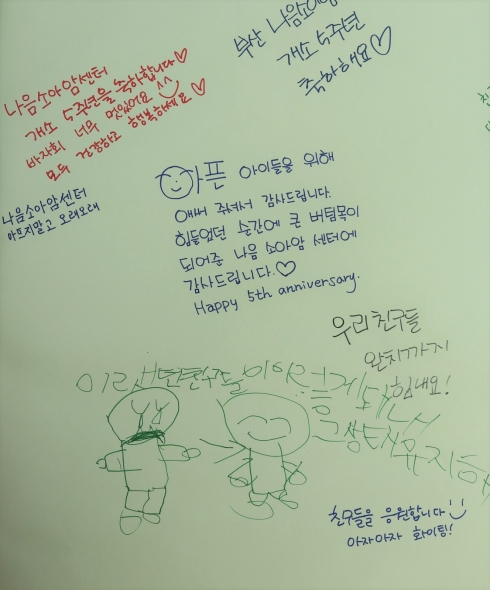 부산 나음소아암
개소 5주년
축하해요♡
나음소아암센터
개소 5주년을 축하합니다♡
바자회 너무 멋있어요 ^^
모두 건강하고 행복하세요♡
나음소아암센터
아프지말고 오래오래
아픈 아이들을 위해
애써 주셔서 감사드립니다.
힘들었던 순간에 큰 버팀목이
되어준 나음 소아암 센터에
감사드립니다.♡
Happy 5th anniversary.
우리친구들
완치까지
힘내요!
친구들을 응원합니다
아자아자 화이팅!